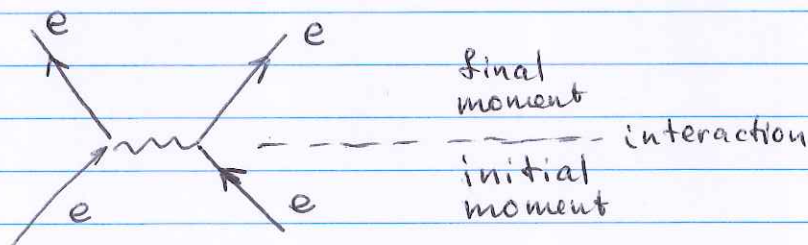 e
e
final
moment
interaction
initial
moment
e
e